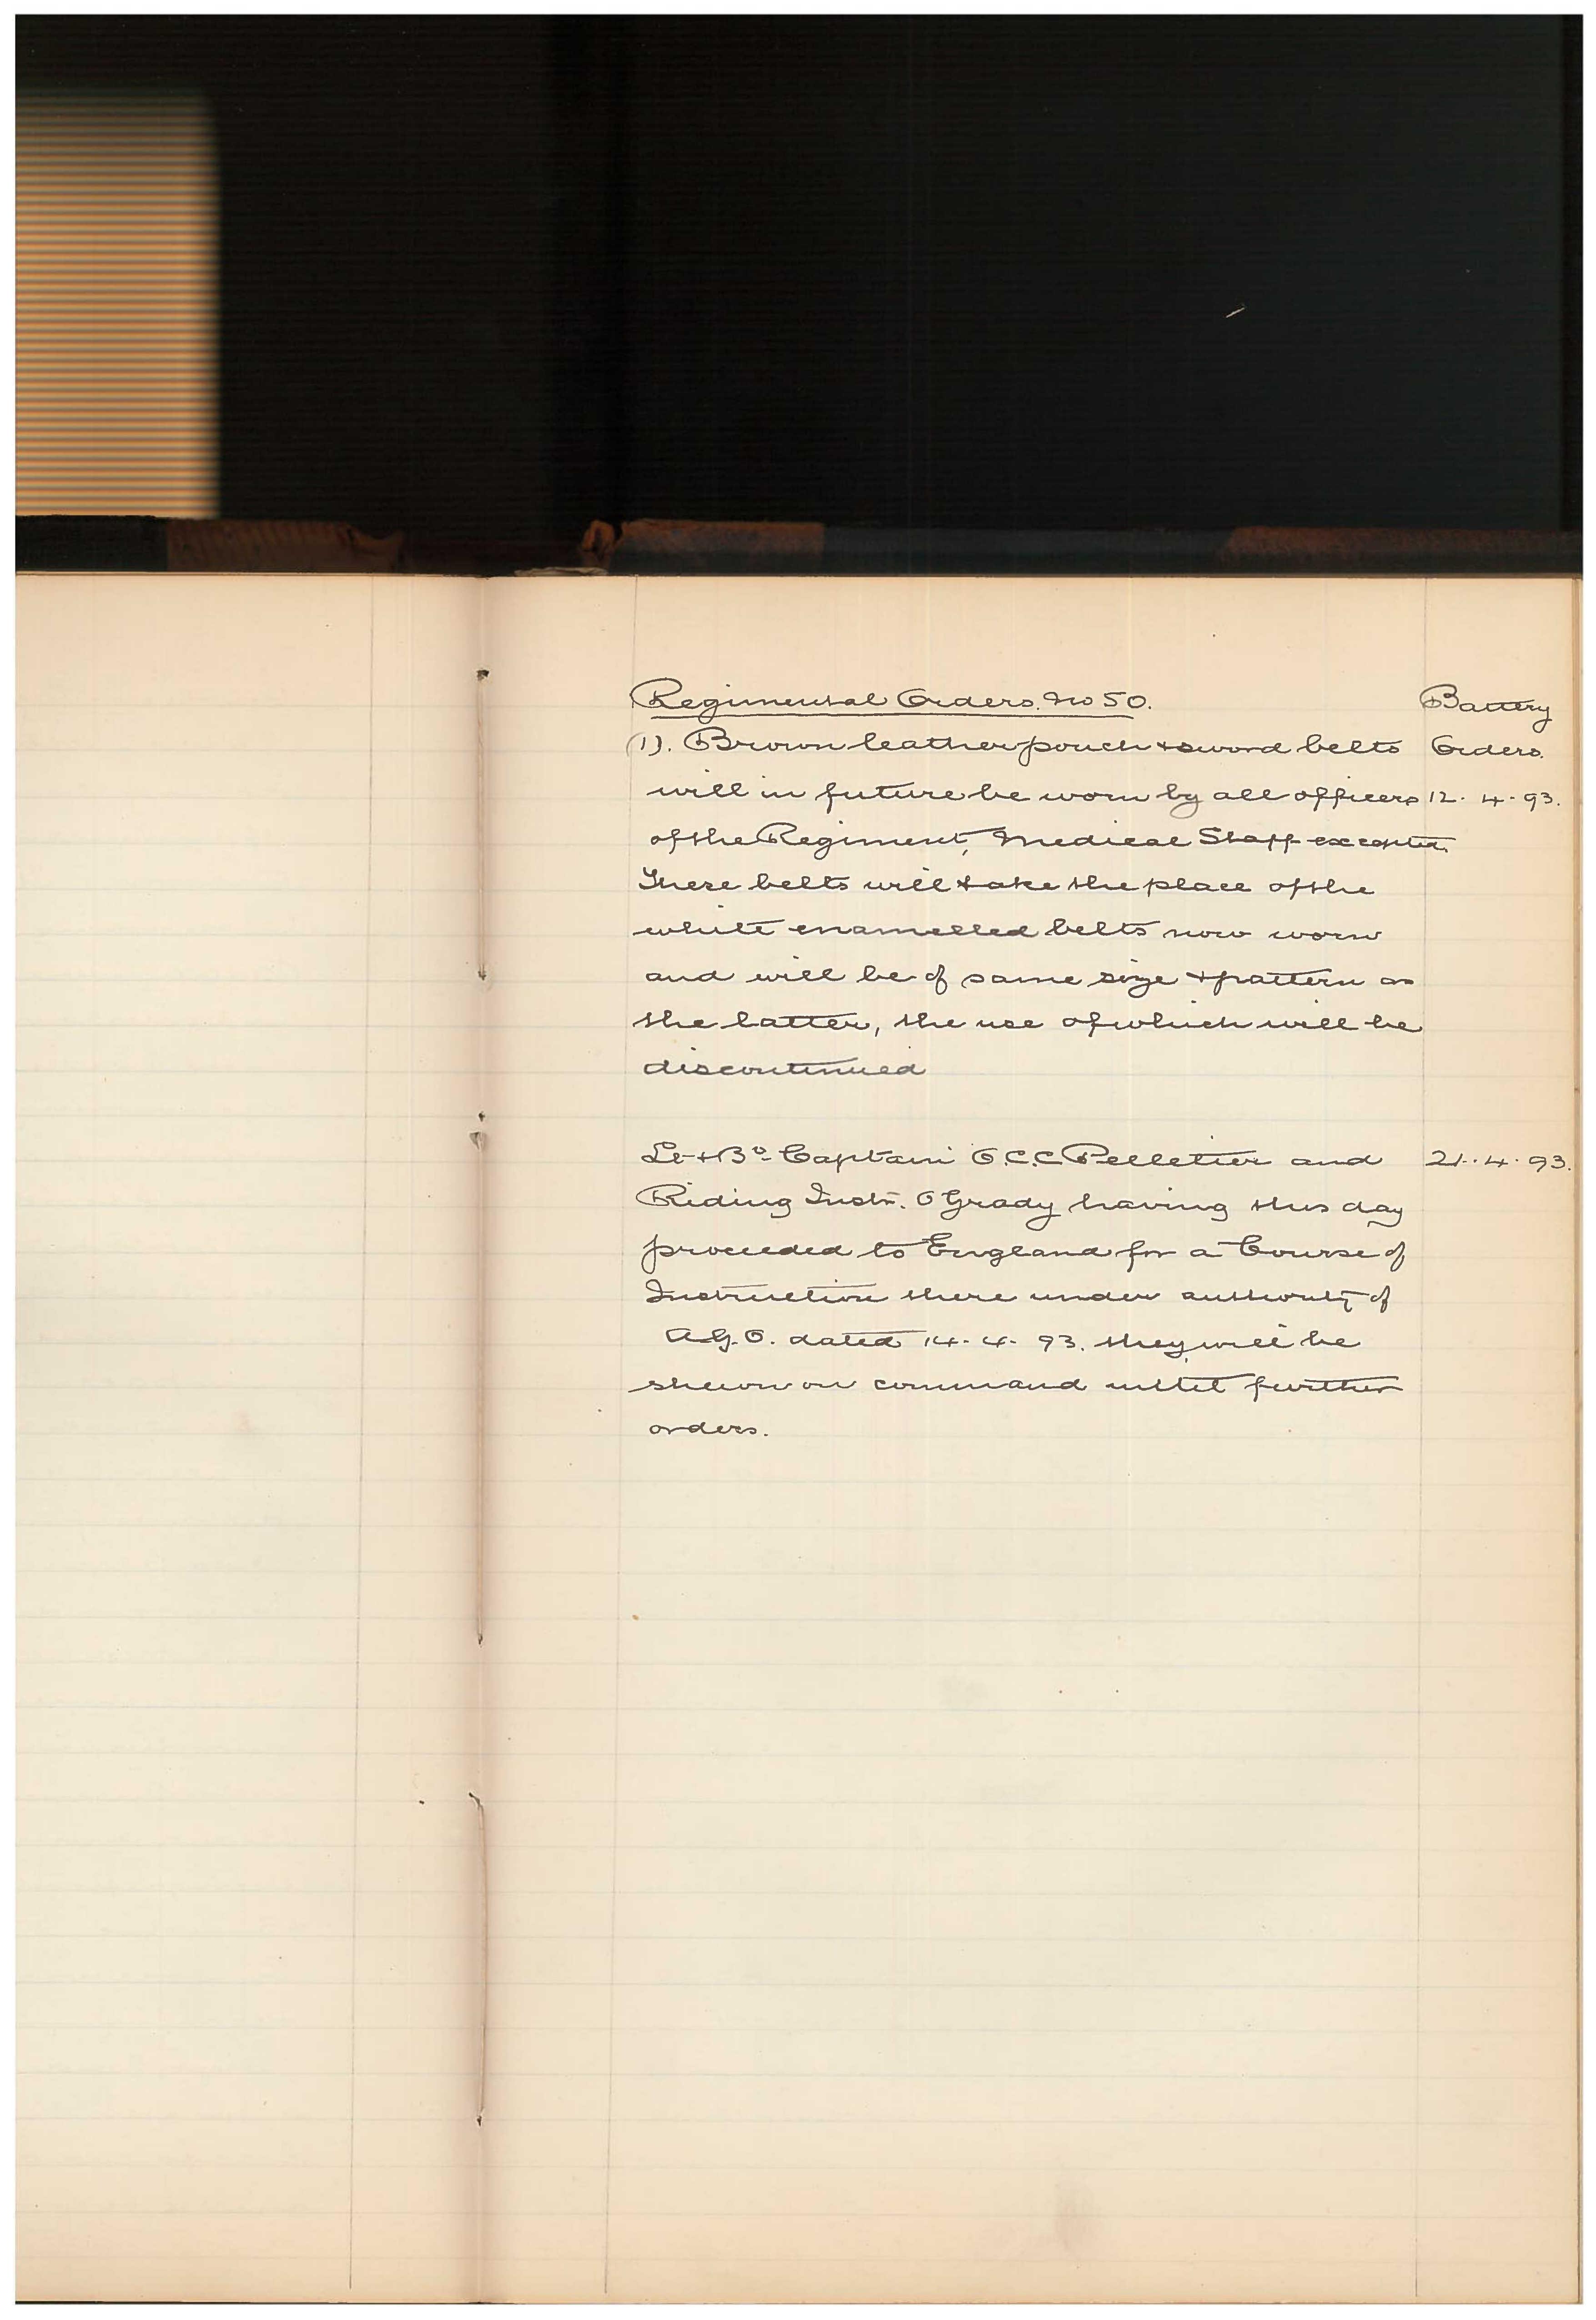 Regimental Orders. No 50.
Battery
(1). Brown leather pouch & sword belts
Orders.
will in future be worn by all officers
12. 4. 93.
of the Regiment, Medical Staff excepted.
These belts will take the place of the
white enamelled belts now worn
and will be of same size & pattern as
the latter, the use of which will be
discontinued
Lt & Bt Captain O.C.C. Pelletier and
21. 4. 93.
Riding Instr. O'Grady having this day
proceeded to England for a Course of
Instruction there under authority of
A.G.O. dated 14. 4. 93. they will be
shewn on command until further
orders.